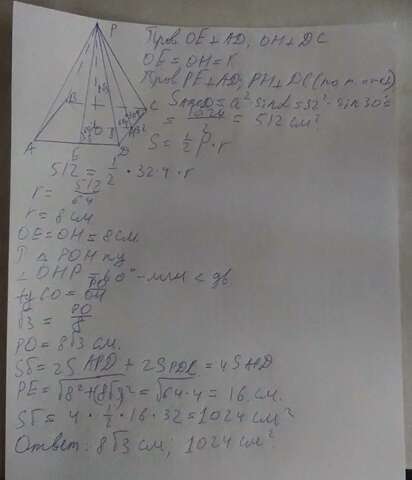 P
Пров OE⊥AD, OH⊥DC
OE = OH = r
Пров PE⊥AD, PH⊥DC (по т. о
S = a²·sinα = 32²·sin30°=
= 1024/2 = 512 см²
S = 1/2 P·r
B C
A E D
512 = 1/2 · 32·4·r
r = 512/64
r = 8 см
OE = OH = 8 см
△ POH п/у
∠ OHP = 60° - лин < дв
tg 60 = PO/OH
√3 = PO/8
PO = 8√3 см.
Sб = 2S APD + 2S PDC = 4S
PE = √8²+(8√3)² = √64·4 = 16 см.
Sб = 4 · 1/2 · 16 · 32 = 1024 см²
Ответ: 8√3 см; 1024 см²